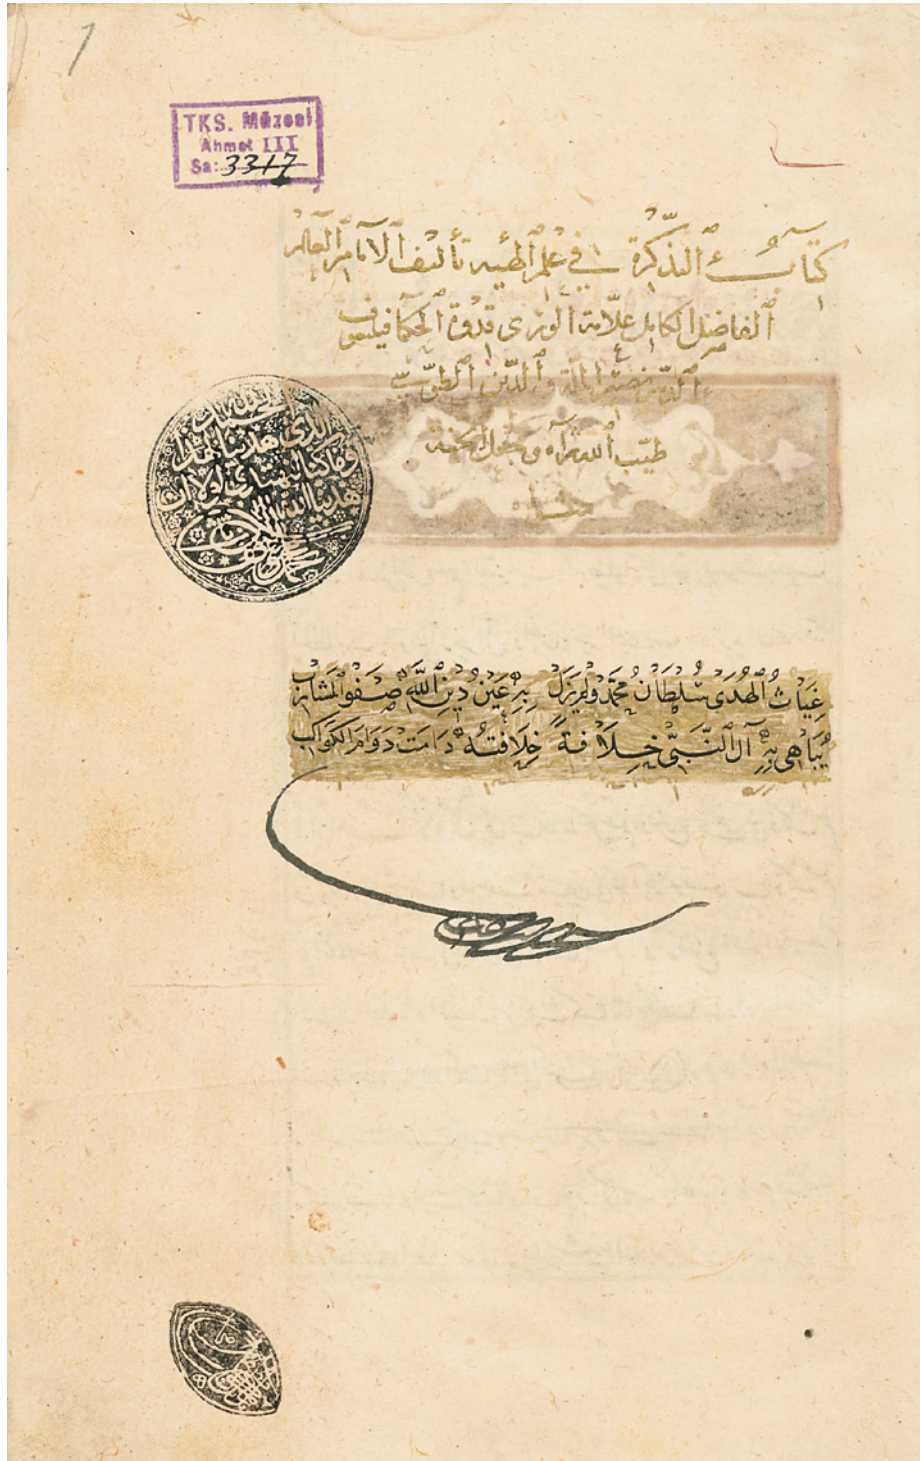 1
TKS. Müzesi
Ahmet III
Sa: 3317
كتاب التذكرة في علم الهيئة تأليف الامام العالم
الفاضل الكامل علامة الورى قدوة الحكما فيلسوف
نصير الملة والدين الطوسي
طيب الله ثراه وجعل الجنة
مثواه
الحمد لله
الذي هدينا لهذا
وما كنا لنهتدي لولا ان
هدينا الله
غِيَاثُ الهُدَى سُلطَانُ مُحَمَّدُ ولم يَزَل بِهِ عَيْنُ دُينِ اللّهِ صَفْوَ المَشَارِب
يُبَاهي بِهِ آل النَّبيّ خِلَافَةً خِلَافَتُهُ دَامَتْ دَوَامَ الكَوَاكِب